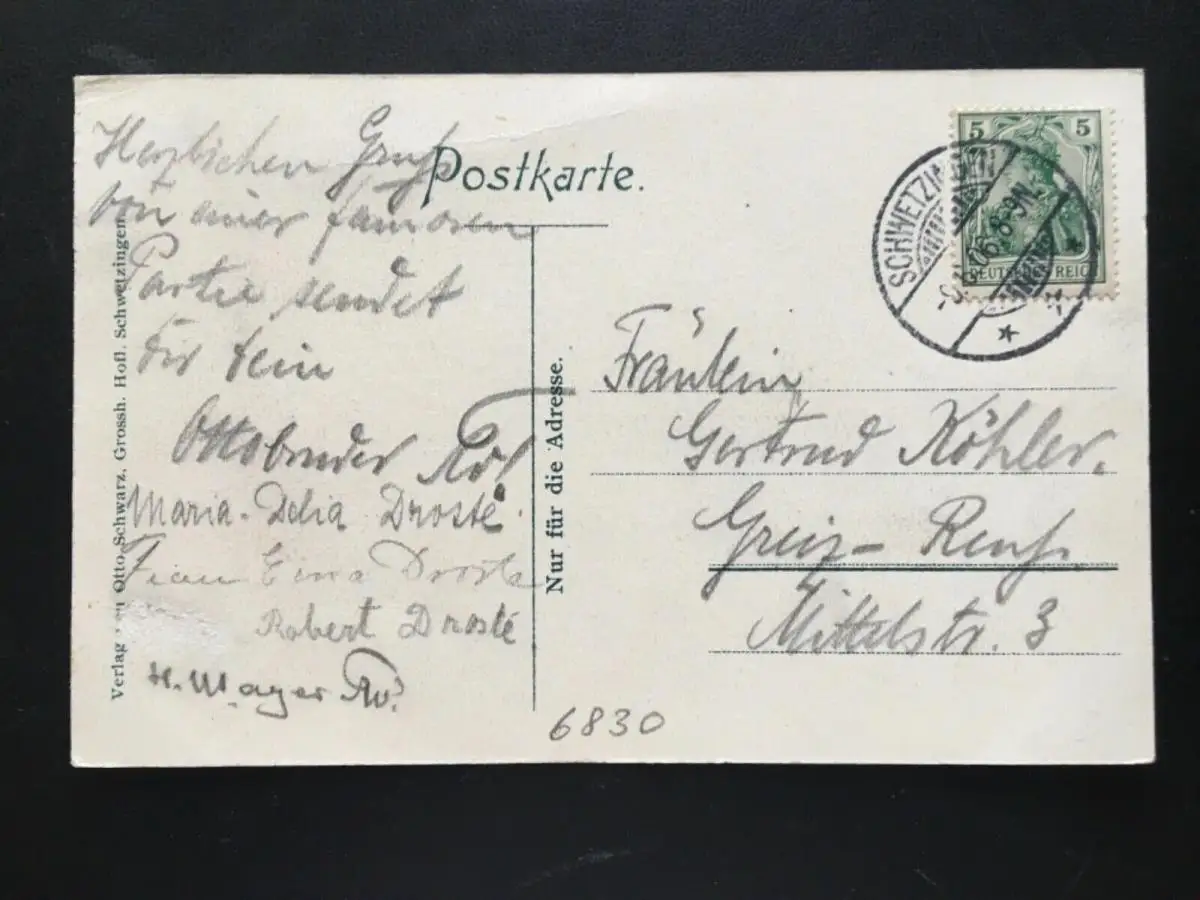 Postkarte.
Herzlichen Gruß
von einer famosen
Partie sendet
dir dein
Ottobruder
Maria-Delia Droste.
Frau Erna Droste
Robert Droste
H. Mayer
Verlag von Otto Schwarz. Grossh. Hofl. Schwetzingen
Nur für die Adresse.
5 5
DEUTSCHES REICH
SCHWETZINGEN
06. 8-9N.
Fräulein
Gertrud Köhler,
Greiz-Reuß.
Mittelstr. 3
6830